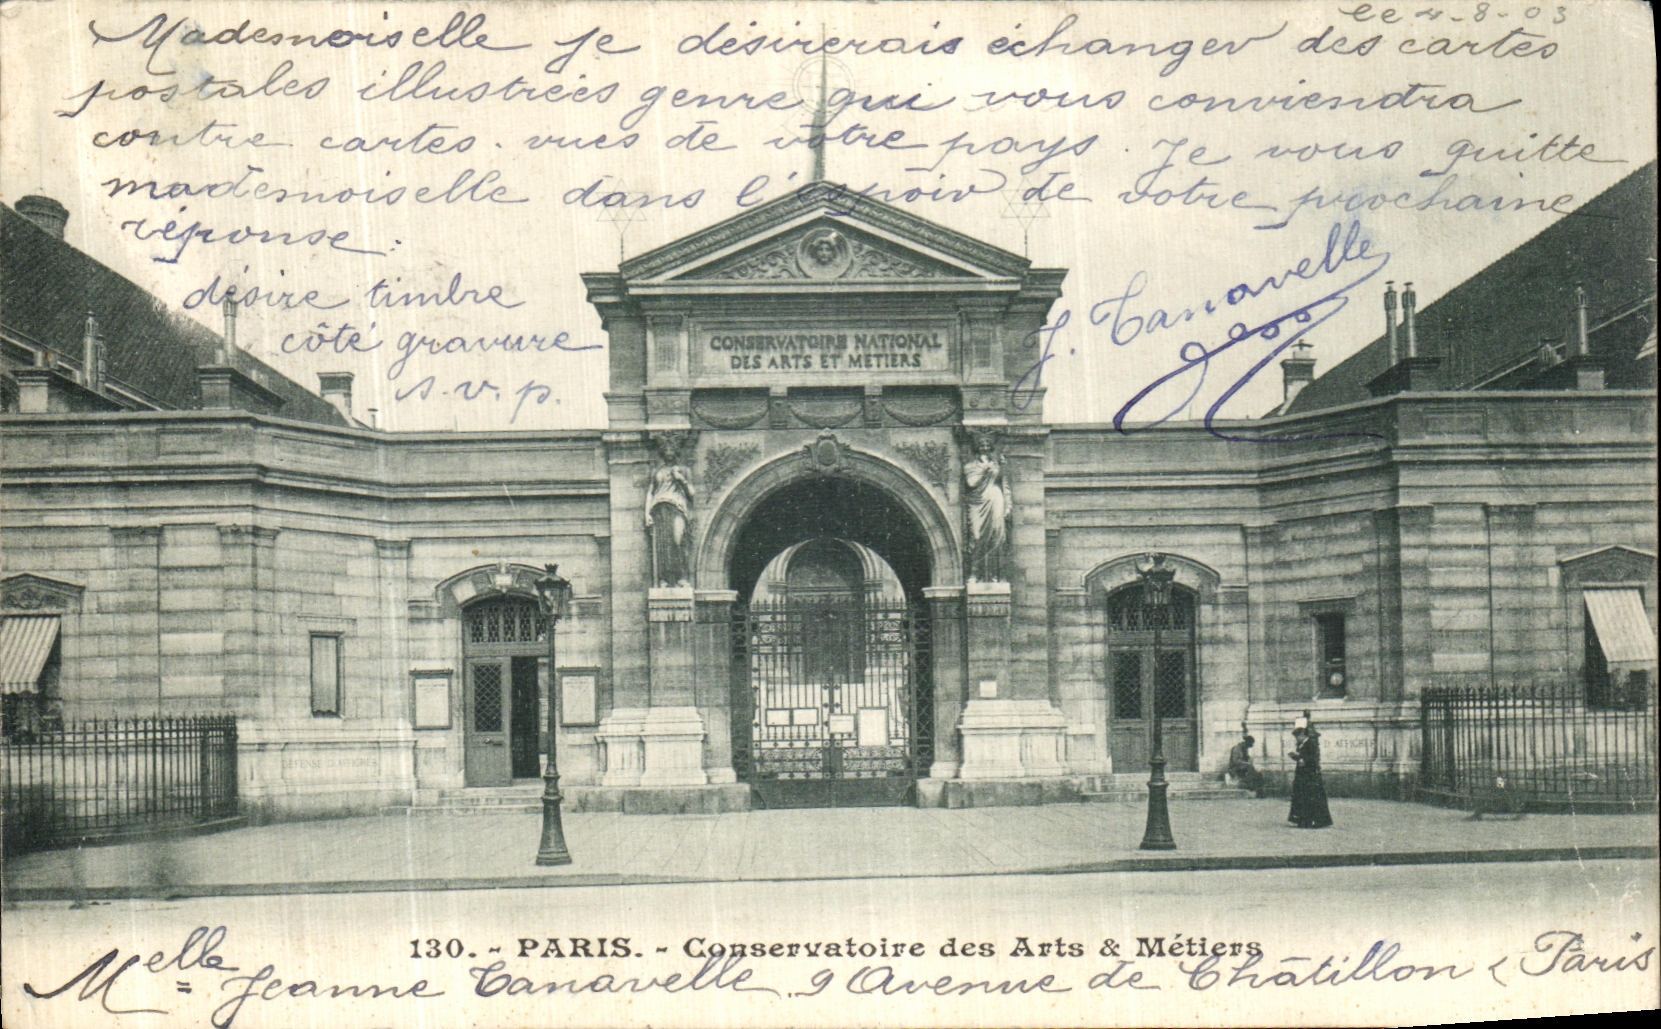 le 4-8-03
Mademoiselle je désirerais échanger des cartes
postales illustrées genre qui vous conviendra
contre cartes. vues de votre pays. Je vous quitte
mademoiselle dans l'espoir de votre prochaine
réponse.
désire timbre
côté gravure
s.v.p.
J. Tanavelle
CONSERVATOIRE NATIONAL
DES ARTS ET METIERS
DEFENSE D'AFFICHER
D'AFFICHER
130. - PARIS. - Conservatoire des Arts & Métiers
Melle Jeanne Tanavelle 9 Avenue de Châtillon Paris